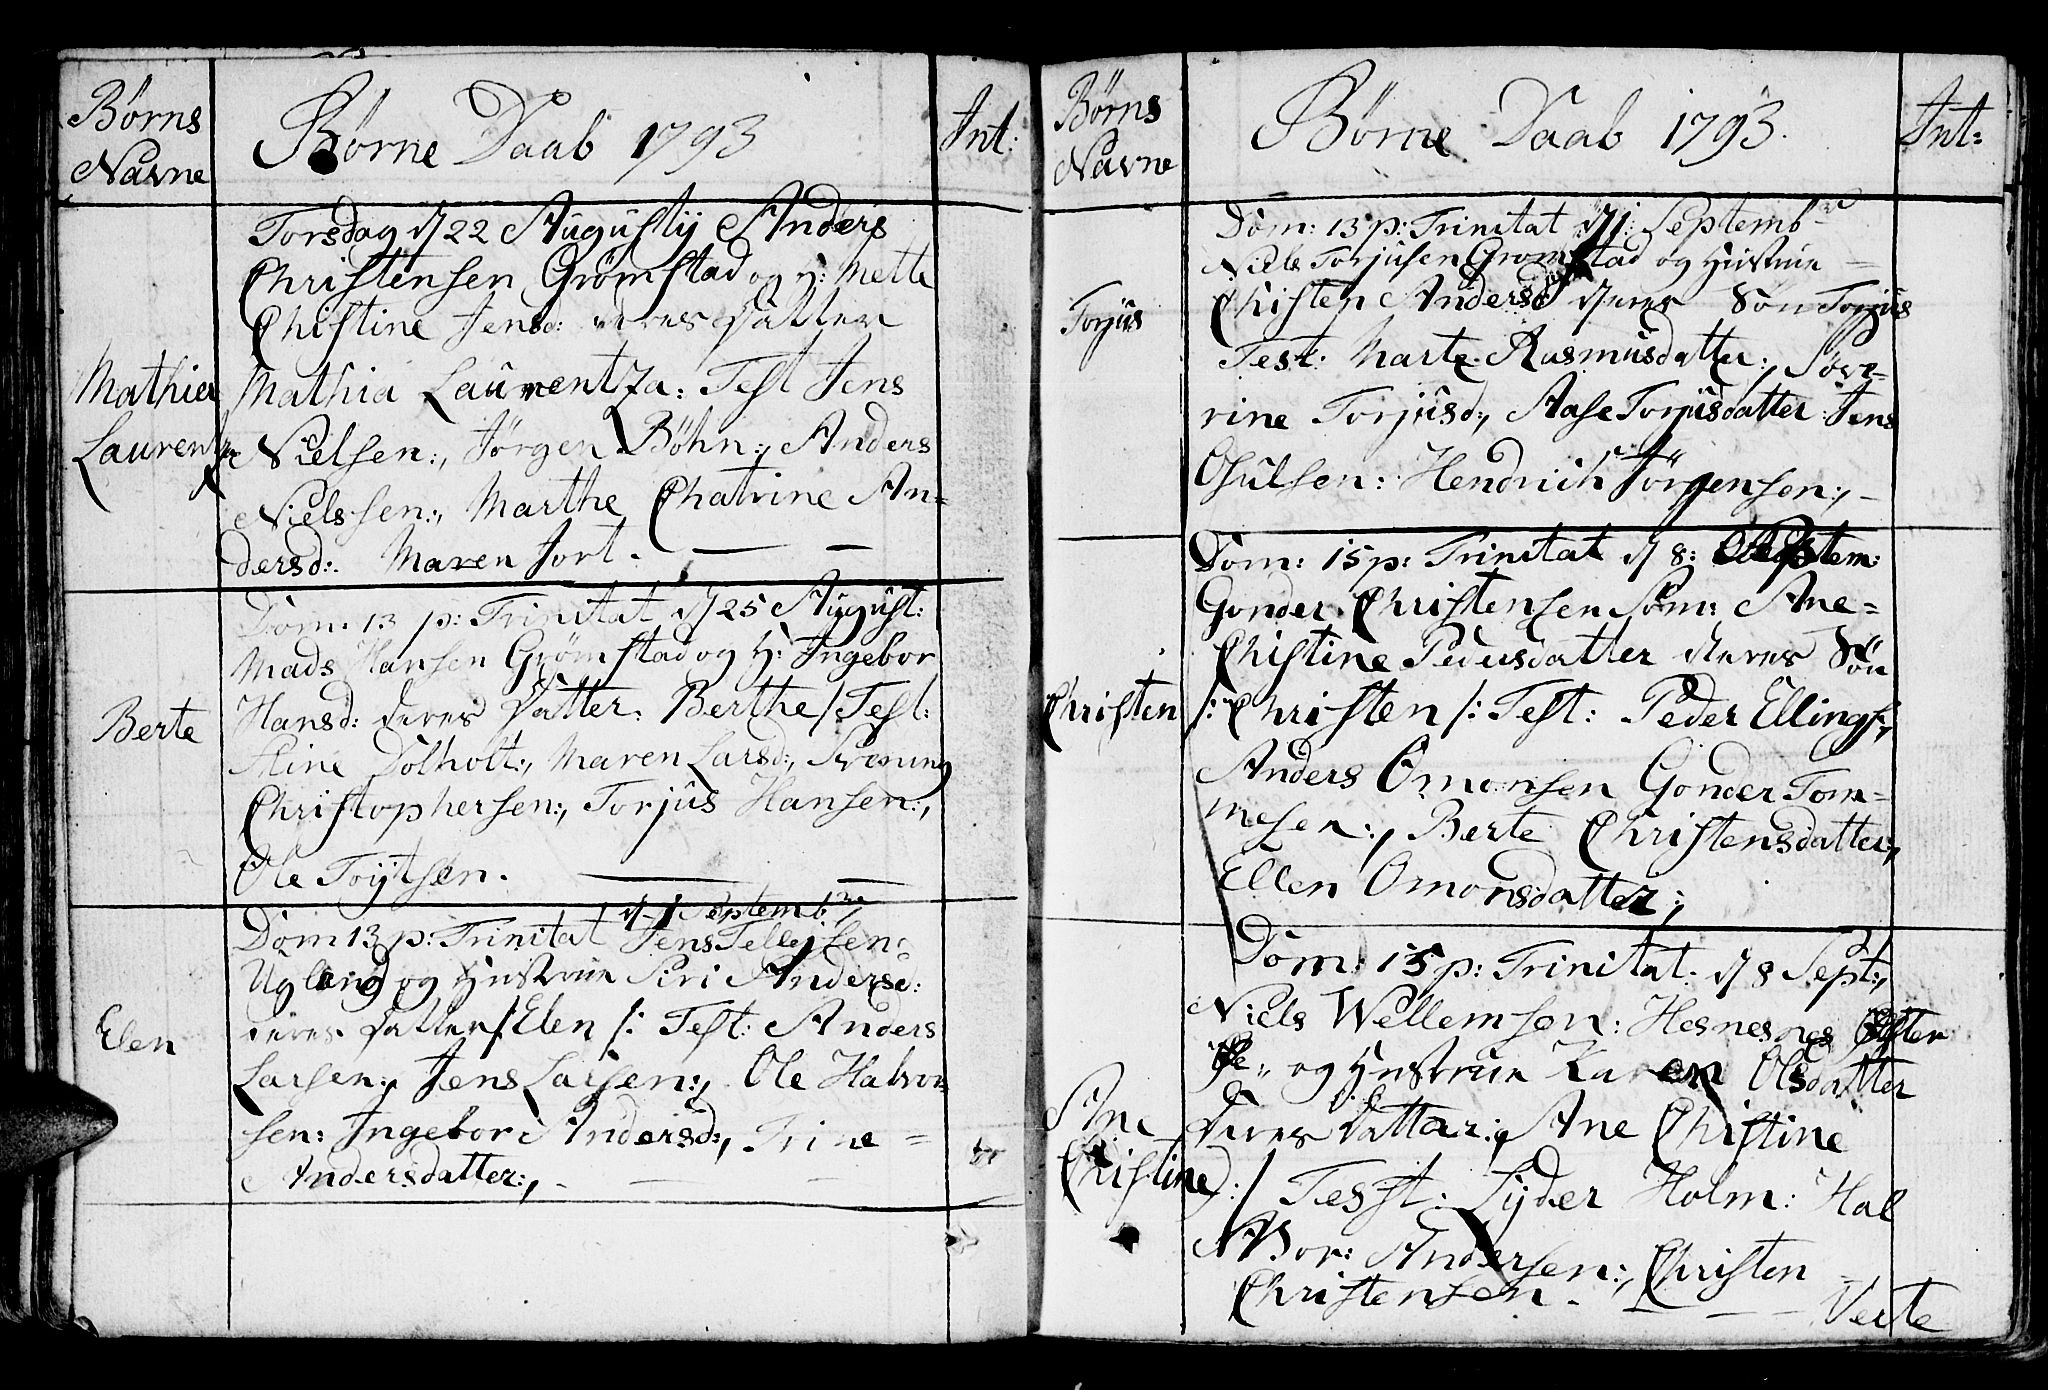 Børns
Navne
Børne Daab 1793
Int:
Mathia
Laurentza
Torsdag d 22 Augustij Anders
Christensen Grømstad og H: Mette
Christine Jensd: deres Datter
Mathia Laurentza: Test Jens
Nielsen:, Jörgen Böhn:, Anders
Nielssen:, Marthe Chatrine An=
dersd:. Maren Jort.
Berte
Dom: 13 p: Trinitat d 25 August:
Mads Hansen Grømstad og H: Ingebor
Hansd: deres Datter: Berthe /: Test:
Stine Dolholt:, Maren Larsd:,
Christophersen:, Torjus Hansen:,
Ole Trytsen.
Elen
d 1 Septembr:
Dom 13 p: Trinitat Jens Tellejsen:
Ugland og Hustrue Siri Andersd:
deres Datter /: Elen /: Test: Anders
Larsen:, Jens Larsen:, Ole Halvor
sen: Ingebor Andersd:, Trine =
Andersdatter:,
Børns
Navne
Børne Daab 1793.
Int:
Torjus
Dom: 13 p: Trinitat d 1: Septembr
Niels Torjusen Gromstad og Hustrue
Christen Andersd deres Sön Torjus
Test: Marte Rasmusdatter:, Söve=
rine Torjusd:, Aase Torjusdatter Jens
Osulsen: Hendrich Jörgensen:,
Christen
Dom: 15 p: Trinitat d 8: Septem:
Gonder Christensen Söm: Ane=
Christine Pedersdatter deres Sön
/: Christen /: Test: Peder Ellings:,
Anders Omonsen Gonder Tom=
mesen:, Berte Christensdatter:,
Ellen Omonsdatter:,
Ane
Christine
Dom: 15 p: Trinitat: d 8 Sept:,
Niels Wellemsen: Hesnes Øster
Øe,, og Hustrue Karen Olsdatter
deres Dattar:, Ane Christine
:/ Tesst: Lyder Holm: Hal
Vor: Andersen:, Christen
Christensen.
Verte